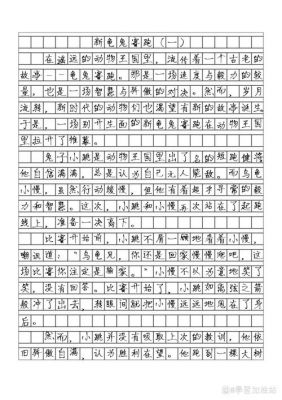 新龟兔赛跑（一）
在遥远的动物王国里，流传着一个古老的
故事——龟兔赛跑。那是一场速度与毅力的较
量，也是一场智慧与骄傲的对决。然而，岁月
流转，新时代的动物们也渴望有新的故事诞生
于是，一场别开生面的新龟兔赛跑在动物王国
里拉开了帷幕。
兔子小跳是动物王国里出了名的短跑健将
他自信满满，总是认为自己无人能敌。而乌龟
小慢，虽然行动缓慢，但他有着超乎寻常的毅
力和智慧。这次，小跳和小慢再次站在了起跑
线上，准备一决高下。
比赛开始前，小跳不屑一顾地看着小慢，
嘲讽道：“乌龟兄，你还是回家慢慢爬吧，这
场比赛你注定是输家。”小慢不以为意地笑了
笑，没有回答。比赛开始了，小跳如离弦之箭
般冲了出去，转眼间就把小慢远远地甩在了身
后。
然而，小跳并没有吸取上次的教训，他依
旧骄傲自满，认为胜利在望。他跑到一棵大树
@学習加油站